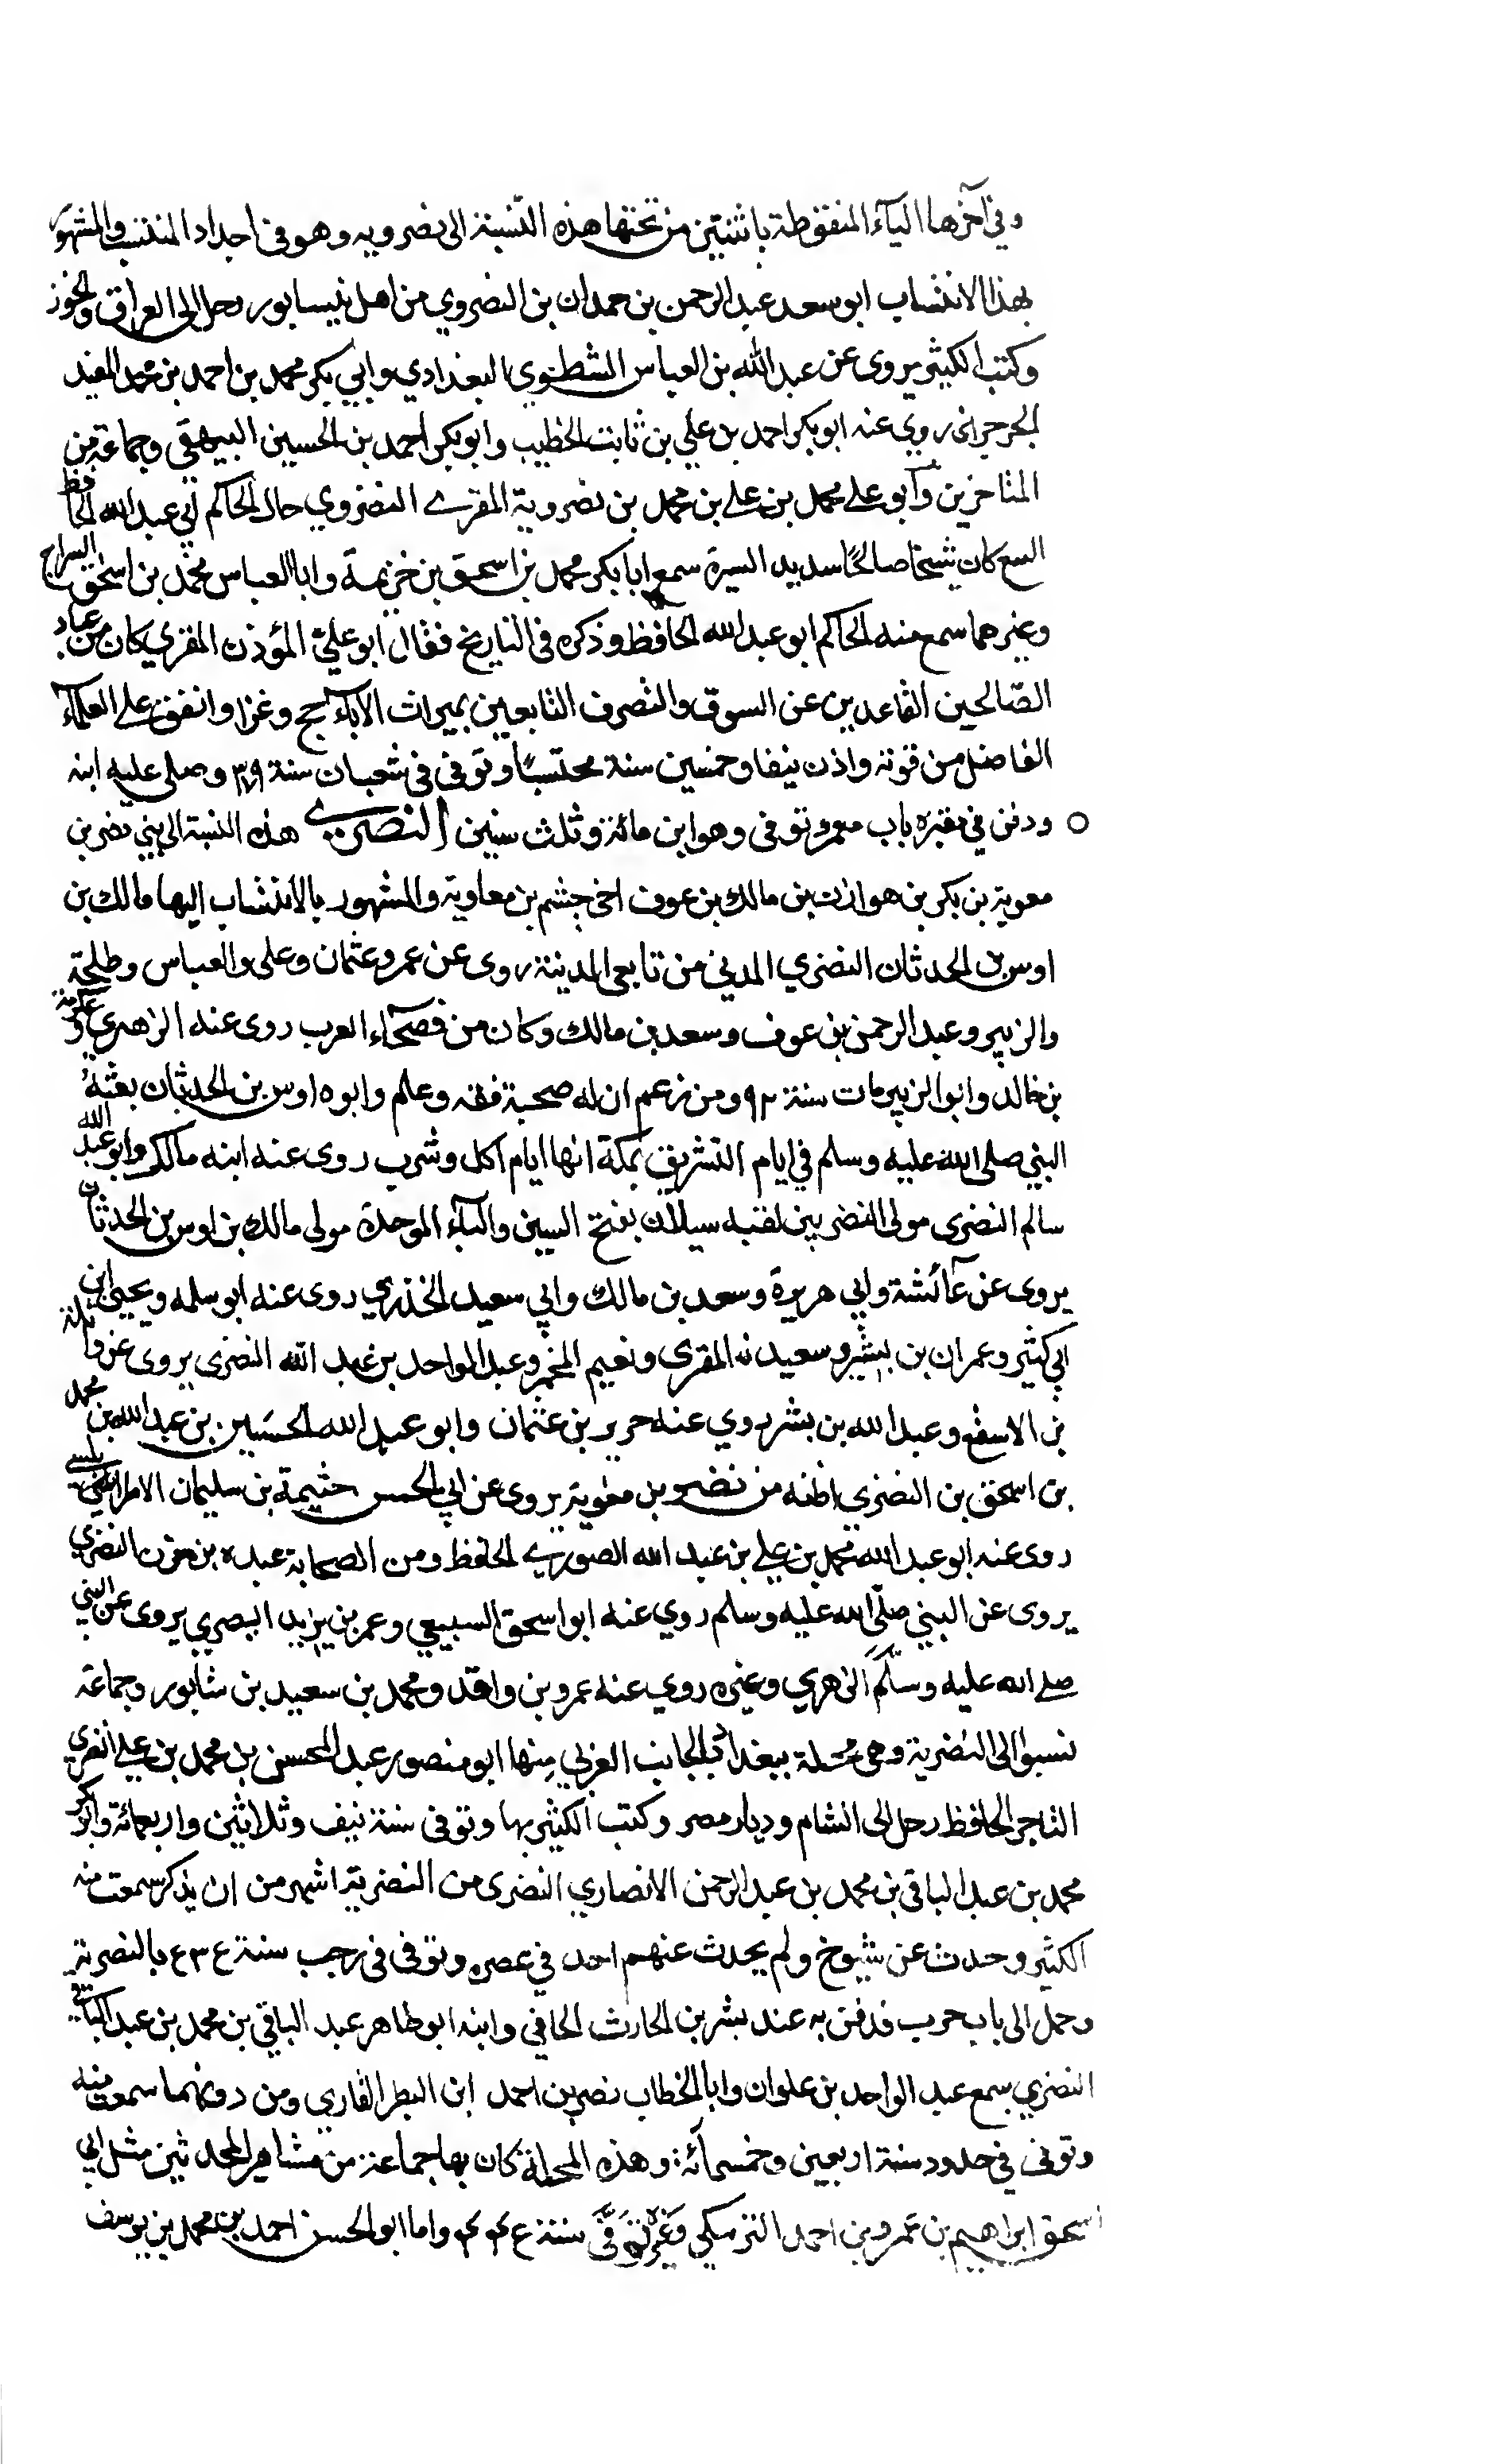 وفي آخرها الياء المنقوطة باثنتين من تحتها هذه النسبة الى نصرويه وهو في اجداد المنتسب والمشهور
بهذا الانتساب ابو سعد عبد الرحمن بن حمدان بن النصروي من اهل نيسابور رحل الى العراق والخوز
وكتب الكثير يروي عن عبد الله بن العباس الشطوي البغدادي وابي بكر محمد بن احمد بن محمد المفيد
الجرجراني روي عنه ابو بكر احمد بن علي بن ثابت الخطيب وابو بكر احمد بن الحسين البيهقي وجماعة من
المتاخرين وابو علي محمد بن علي بن محمد بن نصروية المقري النصروي خال الحاكم ابي عبد الله الحافظ
البيع كان شيخا صالحا سديد السيرة سمع ابا بكر محمد بن اسحق بن خزيمة وابا العباس محمد بن اسحق السراج
وغيرهما سمع منه الحاكم ابو عبد الله الحافظ وذكره في التاريخ فقال ابو علي المؤذن المقري كان من عباد
الصالحين القاعدين عن السوق والتصرف التابعين بميراث الاباء حج وغزا وانفق على العلماء
الفاضل من قوته واذن نيفا وخمسين سنة محتسبا وتوفي في شعبان سنة ٣٧٩ وصلى عليه ابنه
ودفن في مقبرة باب معمر وتوفي وهو ابن مائة وثلث سنين النصري هذه النسبة الى بني نصر بن
معوية بن بكر بن هوازن بن مالك بن عوف اخي جشم بن معاوية والمشهور بالانتساب اليها مالك بن
اوس بن الحدثان النصري المدني من تابعي المدينة روى عن عمر وعثمان وعلي والعباس وطلحة
والزبير وعبد الرحمن بن عوف وسعد بن مالك وكان من فصحاء العرب روى عنه الزهري وعكرمة
بن خالد وابو الزبير مات سنة ٩٢ ومن زعم ان له صحبة فقد وهم وابوه اوس بن الحدثان بعثه
النبي صلى الله عليه وسلم في ايام التشريق بمكة انها ايام اكل وشرب روى عنه ابنه مالك وابو عبد الله
سالم النصري مولى النصريين لقبه سبلان بفتح السين والباء الموحدة مولى مالك بن اوس بن الحدثان
يروى عن عائشة وابي هريرة وسعد بن مالك وابي سعيد الخدري روى عنه ابو سلمه ويحيى ابن
ابي كثير وعمران بن بشير وسعيد المقري ونعيم المجمر وعبد الواحد بن عبد الله النصري يروى عن واثلة
بن الاسقع وعبد الله بن بشر روي عنه حريز بن عثمان وابو عبد الله الحسين بن عبد الله بن محمد
بن اسحق بن النصري اظنه من نصر بن معوية يروى عن ابي الحسن خثيمة بن سليمان الاطرابلسي
روى عنه ابو عبد الله محمد بن علي بن عبد الله الصوري الحافظ ومن الصحابة عبده بن حزن النصري
يروى عن النبي صلى الله عليه وسلم روي عنه ابو اسحق السبيعي وعمر بن يزيد البصري يروى عن النبي
صلى الله عليه وسلم الزهري وغيره روي عنه عمرو بن واقد ومحمد بن سعيد بن شابور وجماعة
نسبوا الى النصرية وهي محلة ببغداد بالجانب الغربي منها ابو منصور عبد المحسن بن محمد بن علي النصري
التاجر الحافظ رحل الى الشام وديار مصر وكتب الكثير بها وتوفي سنة نيف وثلاثين واربعمائة وابو بكر
محمد بن عبد الباقي بن محمد بن عبد الرحمن الانصاري النصري من النصرية اشهر من ان يذكر سمعت منه
الكثير وحدث عن شيوخ ولم يحدث عنهم احد في عصره وتوفي في رجب سنة بالنصرية
وحمل الى باب حرب فدفن به عند بشر بن الحارث الحافي وابنه ابو طاهر عبد الباقي بن محمد بن عبد الباقي
النصري سمع عبد الواحد بن علوان وابا الخطاب نصر بن احمد ابن البطر القاري ومن دونهما سمعت منه
وتوفي في حدود سنة اربعين وخمسمائة وهذه المحلة كان بها جماعة من مشاهير المحدثين مثل ابي
اسحق ابراهيم بن عمر وبن احمد البرمكي وغيره توفي سنة واما ابو الحسن احمد بن محمد بن يوسف